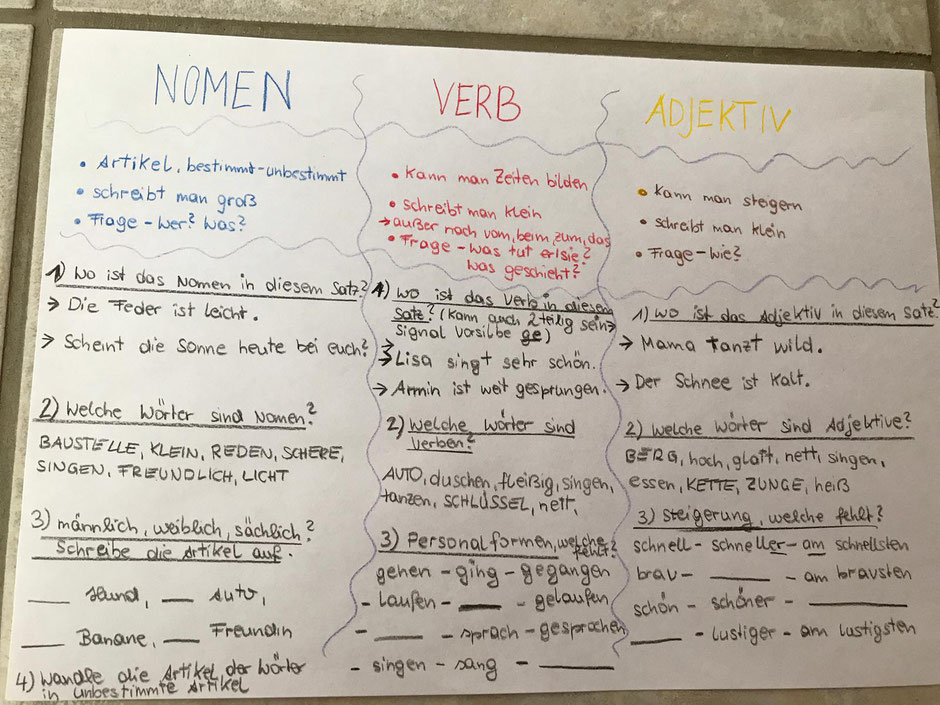 NOMEN
• Artikel, bestimmt-unbestimmt
• schreibt man groß
• Frage - wer? was?
1) Wo ist das Nomen in diesem Satz?
→ Die Feder ist leicht.
→ Scheint die Sonne heute bei euch?
2) Welche Wörter sind Nomen?
BAUSTELLE, KLEIN, REDEN, SCHERE,
SINGEN, FREUNDLICH, LICHT
3) männlich, weiblich, sächlich?
Schreibe die Artikel auf.
___ Hund, ___ Auto,
___ Banane, ___ Freundin
4) Wandle die Artikel der Wörter
in unbestimmte Artikel
VERB
• Kann man Zeiten bilden
• schreibt man klein
→ außer nach vom, beim, zum, das
• Frage - was tut er/sie?
was geschieht?
1) Wo ist das Verb in diesem
Satz? (Kann auch 2 teilig sein →
Signal Vorsilbe ge)
→ Lisa singt sehr schön.
→ Armin ist weit gesprungen.
2) Welche Wörter sind
Verben?
AUTO, duschen, fleißig, singen,
tanzen, SCHLÜSSEL, nett,
3) Personalformen, welche
fehlt?
gehen - ging - gegangen
- laufen - ___ - gelaufen
- ___ - sprach - gesprochen
- singen - sang - ___
ADJEKTIV
• Kann man steigern
• schreibt man klein
• Frage - wie?
1) Wo ist das Adjektiv in diesem Satz?
→ Mama tanzt wild.
→ Der Schnee ist Kalt.
2) Welche Wörter sind Adjektive?
BERG, hoch, glatt, nett, singen,
essen, KETTE, ZUNGE, heiß
3) Steigerung, welche fehlt?
schnell - schneller - am schnellsten
brav - ___ - am bravsten
schön - schöner - ___
___ - lustiger - am lustigsten